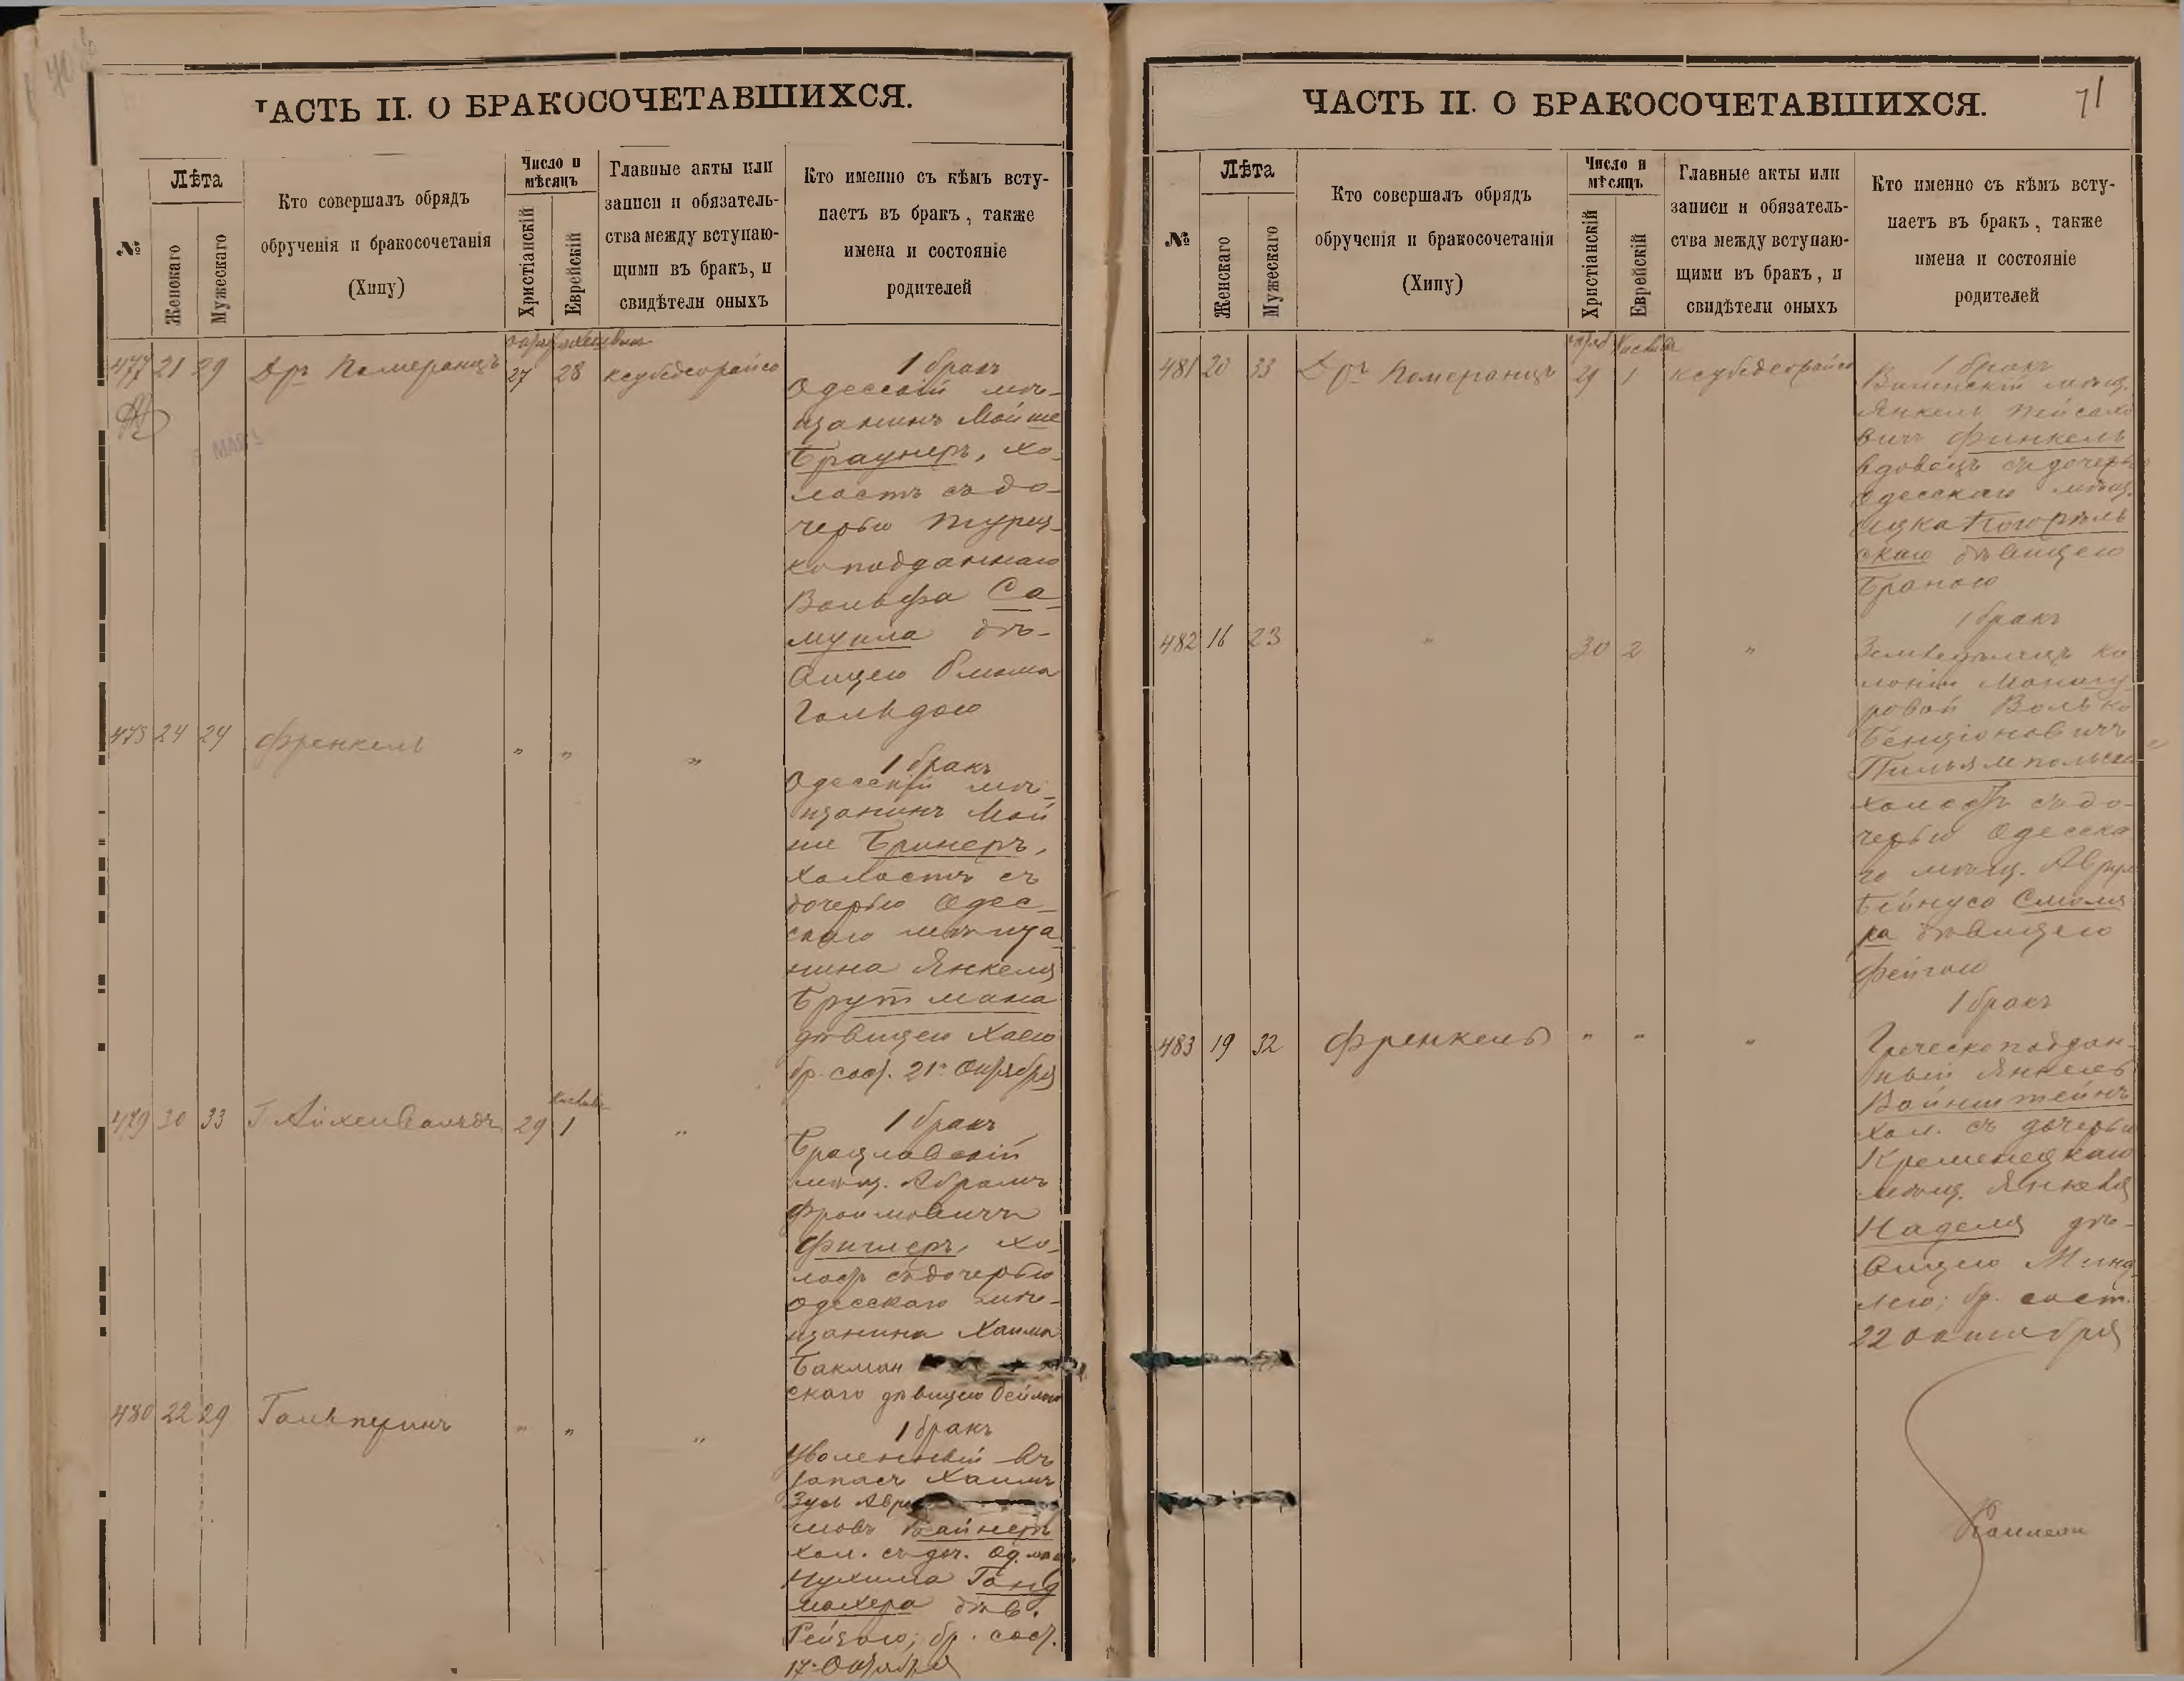 ЧАСТЬ II. О БРАКОСОЧЕТАВШИХСЯ.
№
Лѣта
Женскаго
Мужескаго
Кто совершалъ обрядъ
обрученія и бракосочетанія
(Хипу)
Число и
мѣсяцъ
Христіанскій
Еврейскій
Главные акты или
записи и обязатель-
ства между вступаю-
щими въ бракъ, и
свидѣтели оныхъ
Кто именно съ кѣмъ всту-
паетъ въ бракъ, также
имена и состояніе
родителей
477 21 29 Дръ Померанцъ 27 28
1 бракъ
Одесскій мѣ-
щанинъ Мойше
Браунеръ, хо-
лостъ съ до-
черью турец-
коподданнаго
Вольфа Са-
муила дѣ-
вицею
Гольдою
478 24 24 Френкель „ „ „
1 бракъ
Одесскій мѣ-
щанинъ Мой
ше Бринеръ,
холостъ съ
дочерью Одес-
скаго мѣща-
нина Янкеля
Брутмана
дѣвицею Хаею
бр. сост. 21 Октября
479 30 33 Г Айхенвальдъ 29 1 „
1 бракъ
Брацлавскій
мѣщ. Абрамъ
Фроимовичъ
Фиглеръ, хо-
лостъ съ дочерью
Одесскаго мѣ-
щанина Хаима
Бакман
скаго дѣвицею Бейлою
480 22 29 Гальперинъ „ „ „
1 бракъ
Уволенный въ
запасъ Хаимъ
Зусь Авра
мовъ Вайнеръ
хол. съ доч. Од. мѣщ.
Нухима Ганд
махера дѣв.
Рейзою; бр. сост.
17 Октября
ЧАСТЬ II. О БРАКОСОЧЕТАВШИХСЯ.
71
№
Лѣта
Женскаго
Мужескаго
Кто совершалъ обрядъ
обрученія и бракосочетанія
(Хипу)
Число и
мѣсяцъ
Христіанскій
Еврейскій
Главные акты или
записи и обязатель-
ства между вступаю-
щими въ бракъ, и
свидѣтели оныхъ
Кто именно съ кѣмъ всту-
паетъ въ бракъ, также
имена и состояніе
родителей
481 20 33 Дръ Померанцъ 29 1
1 бракъ
Виленскій мѣщ.
Янкель Пейсахо
вичъ Финкель
вдовецъ съ дочерью
Одесскаго мѣщ.
Ицка Погорѣль
скаго дѣвицею
Браною
482 16 23 „ 30 2 „
1 бракъ
Земледѣлецъ ко
лоніи
ровой Волько
Бенціоновичъ
холостъ съ до-
черью Одесска
го мѣщ. Авру
Бейнуса Смоля
ра дѣвицею
Фейгою
483 19 32 Френкель „ „ „
1 бракъ
Греческоподдан-
ный Янкель
Вайнштейнъ
хол. съ дочерью
Кременецкаго
мѣщ. Янкеля
Наделя дѣ-
вицею Минд
лею; бр. сост.
22 октября